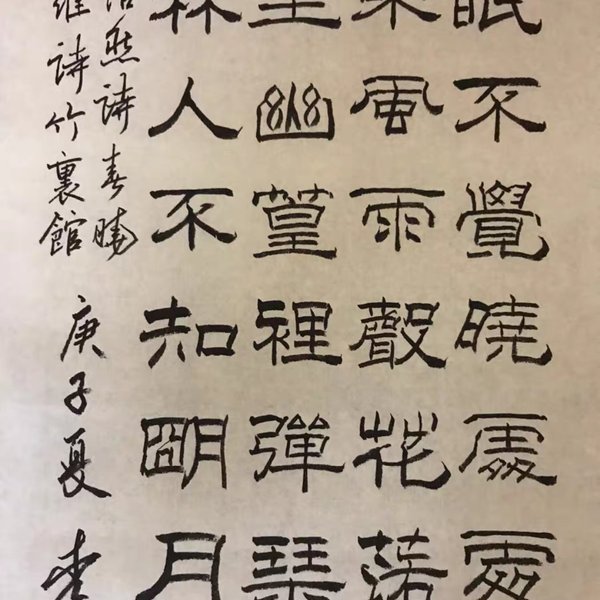 眠不覺曉處處
來風雨聲花落
坐幽篁裡彈琴
林人不知朙月
浩然詩春曉
維詩竹裏館 庚子夏